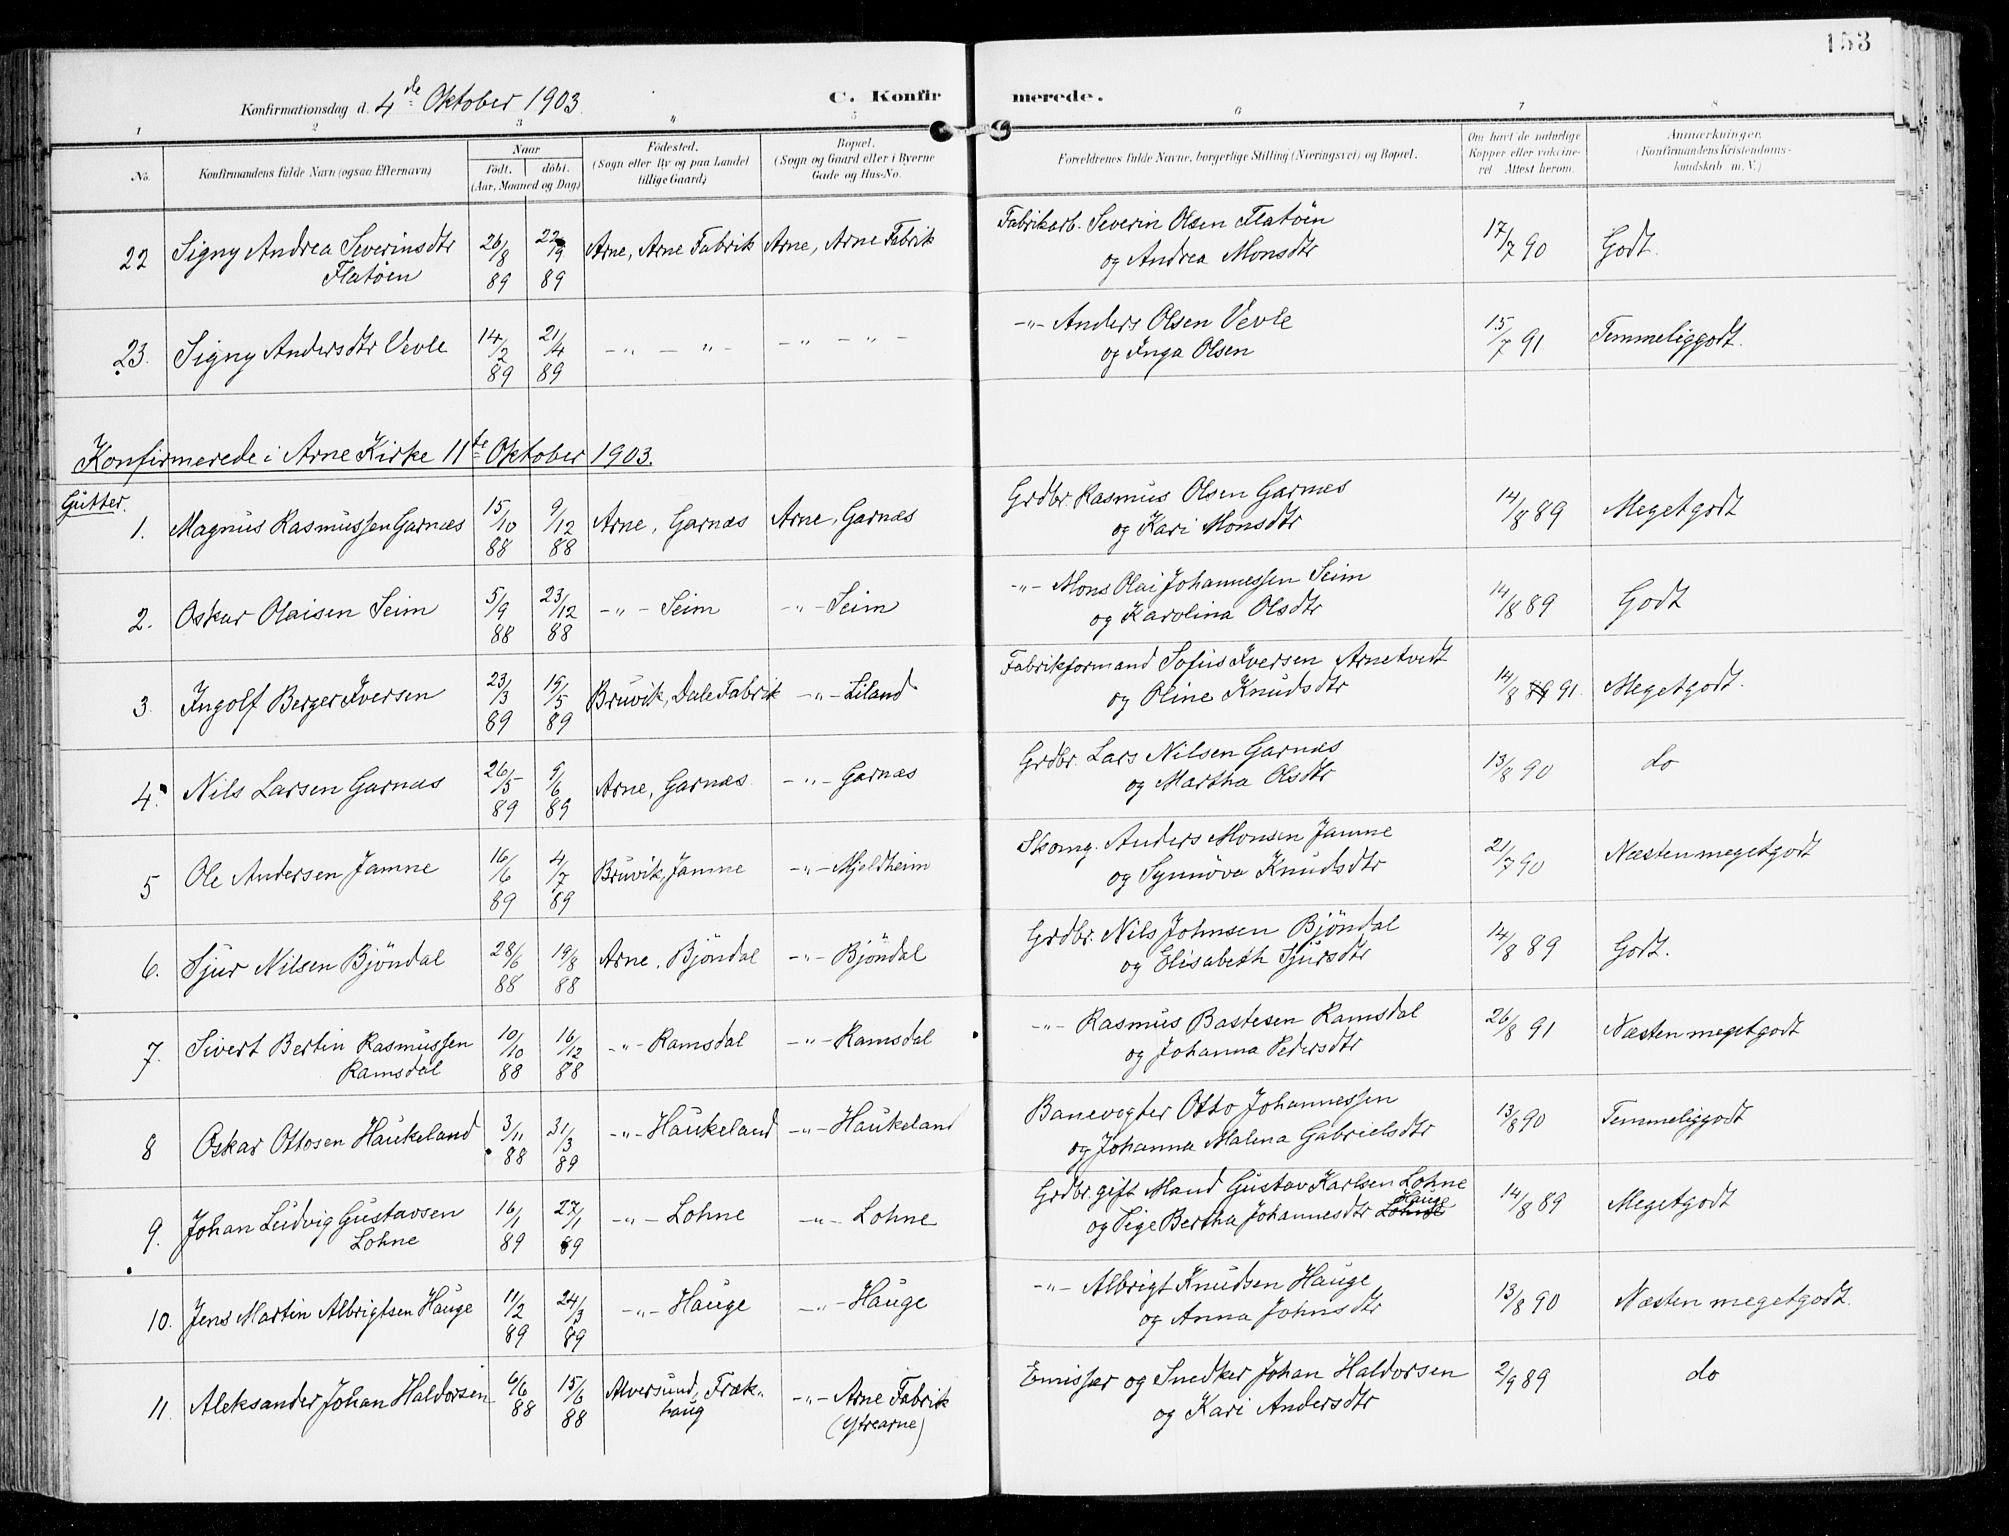 153
Konfirmationsdag d. 4de Oktober 1903.
C. Konfirmerede.
1 2 3 4 5 6 7 8
No.
Konfirmandens fulde Navn (ogsaa Efternavn)
Naar
født. døbt.
(Aar, Maaned og Dag)
Fødested.
(Sogn eller By og paa Landet
tillige Gaard)
Bopæl.
(Sogn og Gaard eller i Byerne
Gade og Hus-No.
Forældrenes fulde Navne, borgerlige Stilling (Næringsvei) og Bopæl.
Om havt de naturlige
Kopper eller vaccine-
ret. Attest herom.
Anmærkninger.
(Konfirmandens Kristendoms-
kundskab m. V.)
22 Signy Andrea Severinsdtr 26/8 22/9 Arne, Arne Fabrik Arne, Arne Fabrik Fabrikarb. Severin Olsen Flatøen 17/7 90 Godt.
Flatøen 89 89 og Andrea Monsdtr
23. Signy Andersdtr Vevle 14/2 21/4 -"- -"- -"- -"- -"- Anders Olsen Vevle 15/7 91 Temmeliggodt.
89 89 og Inga Olsen
Konfirmerede i Arne Kirke 11te Oktober 1903.
Gutter.
1. Magnus Rasmussen Garnæs 15/10 9/12 Arne, Garnæs Arne, Garnæs Grdbr. Rasmus Olsen Garnæs 14/8 89 Megetgodt
88 88 og Kari Monsdtr
2. Oskar Olaisen Seim 5/9 23/12 -"- Seim -"- Seim -"- Mons Olai Johannessen Seim 14/8 89 Godt
88 88 og Karolina Olsdtr
3. Ingolf Berger Iversen 23/3 19/5 Bruvik, Dale Fabrik -"- Liland Fabrikformand Sofus Iversen Arnetvedt 14/8 89 91 Megetgodt.
89 89 og Oline Knudsdtr
4. Nils Larsen Garnæs 26/5 9/6 Arne, Garnæs -"- Garnæs Grdbr. Lars Nilsen Garnæs 13/8 90 do
89 89 og Martha Olsdtr
5 Ole Andersen Jamne 16/6 4/7 Bruvik, Jamne -"- Mjeldheim Skomg. Anders Monsen Jamne 21/7 90 Næsten megetgodt
89 89 og Synnöve Knudsdtr
6. Sjur Nilsen Bjöndal 28/6 19/8 Arne, Bjöndal -"- Bjöndal Grdbr. Nils Johnsen Bjöndal 14/8 89 Godt.
88 88 og Elisabeth Sjursdtr
7. Sivert Bertin Rasmussen 10/10 16/12 -"- Ramsdal -"- Ramsdal -"- Rasmus Bastesen Ramsdal 26/8 91 Næsten megetgodt
Ramsdal 88 88 og Johanna Pedersdtr
8 Oskar Ottosen Haukeland 3/11 31/3 -"- Haukeland -"- Haukeland Banevogter Otto Johannessen 13/8 90 Temmeliggodt
88 89 og Johanna Malena Gabrielsdtr
9. Johan Ludvig Gustavsen 16/1 27/1 -"- Lohne -"- Lohne Grdbr. gift Mand Gustav Karlsen Lohne 14/8 89 Megetgodt
Lohne 89 89 og Pige Bertha Johannesdtr Lohne Hauge
10. Jens Martin Albrigtsen Hauge 11/2 24/3 -"- Hauge -"- Hauge -"- Albrigt Knudsen Hauge 13/8 90 Næsten megetgodt.
89 89 og Anna Johnsdtr
11. Aleksander Johan Haldorsen 6/6 15/6 Alversund, Fræk- -"- Arne Fabrik Emissær og Snedker Johan Haldorsen 2/9 89 do
88 88 haug (Ytrearne) og Kari Andersdtr